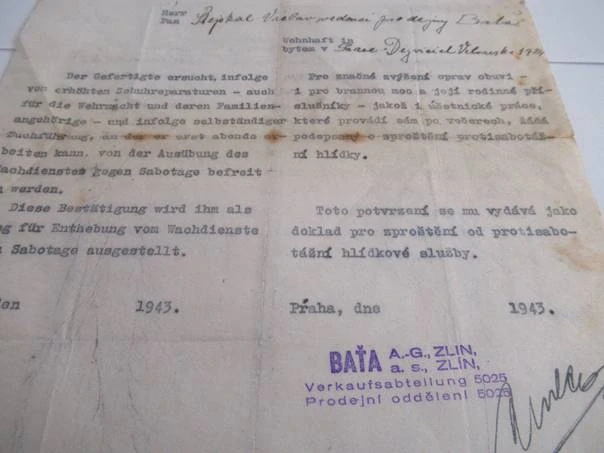 Herr
Pan Rejskal Václav vedoucí prodejny Baťa
Wohnhaft in
bytem v Praze Dejvicích
Der Gefertigte ersucht, infolge
von erhöhten Schuhreparaturen - auch
für die Wehrmacht und deren Familien-
angehörige - und infolge selbständiger
Buchführung, an der er erst abends
beiten kann, von der Ausübung des
Wachdienstes gegen Sabotage befreit
werden.
Diese Bestätigung wird ihm als
g für Enthebung vom Wachdienste
n Sabotage ausgestellt.
1943.
Pro značné zvýšení oprav obuvi
i pro brannou moc a její rodinné pří-
slušníky - jakož i účetnické práce,
které provádí sám po večerech, žádá
podepsaný o sproštění protisabotáž-
ní hlídky.
Toto potvrzení se mu vydává jako
doklad pro sproštění od protisabo-
tážní hlídkové služby.
Praha, dne 1943.
BAŤA A.-G., ZLIN,
a. s., ZLÍN,
Verkaufsabteilung 5025
Prodejní oddělení 5025